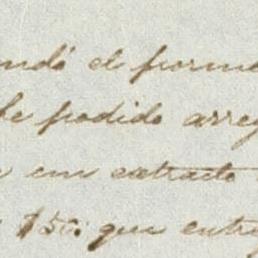 ndó el forma
he podido arreg
en extracto
$50: que entre